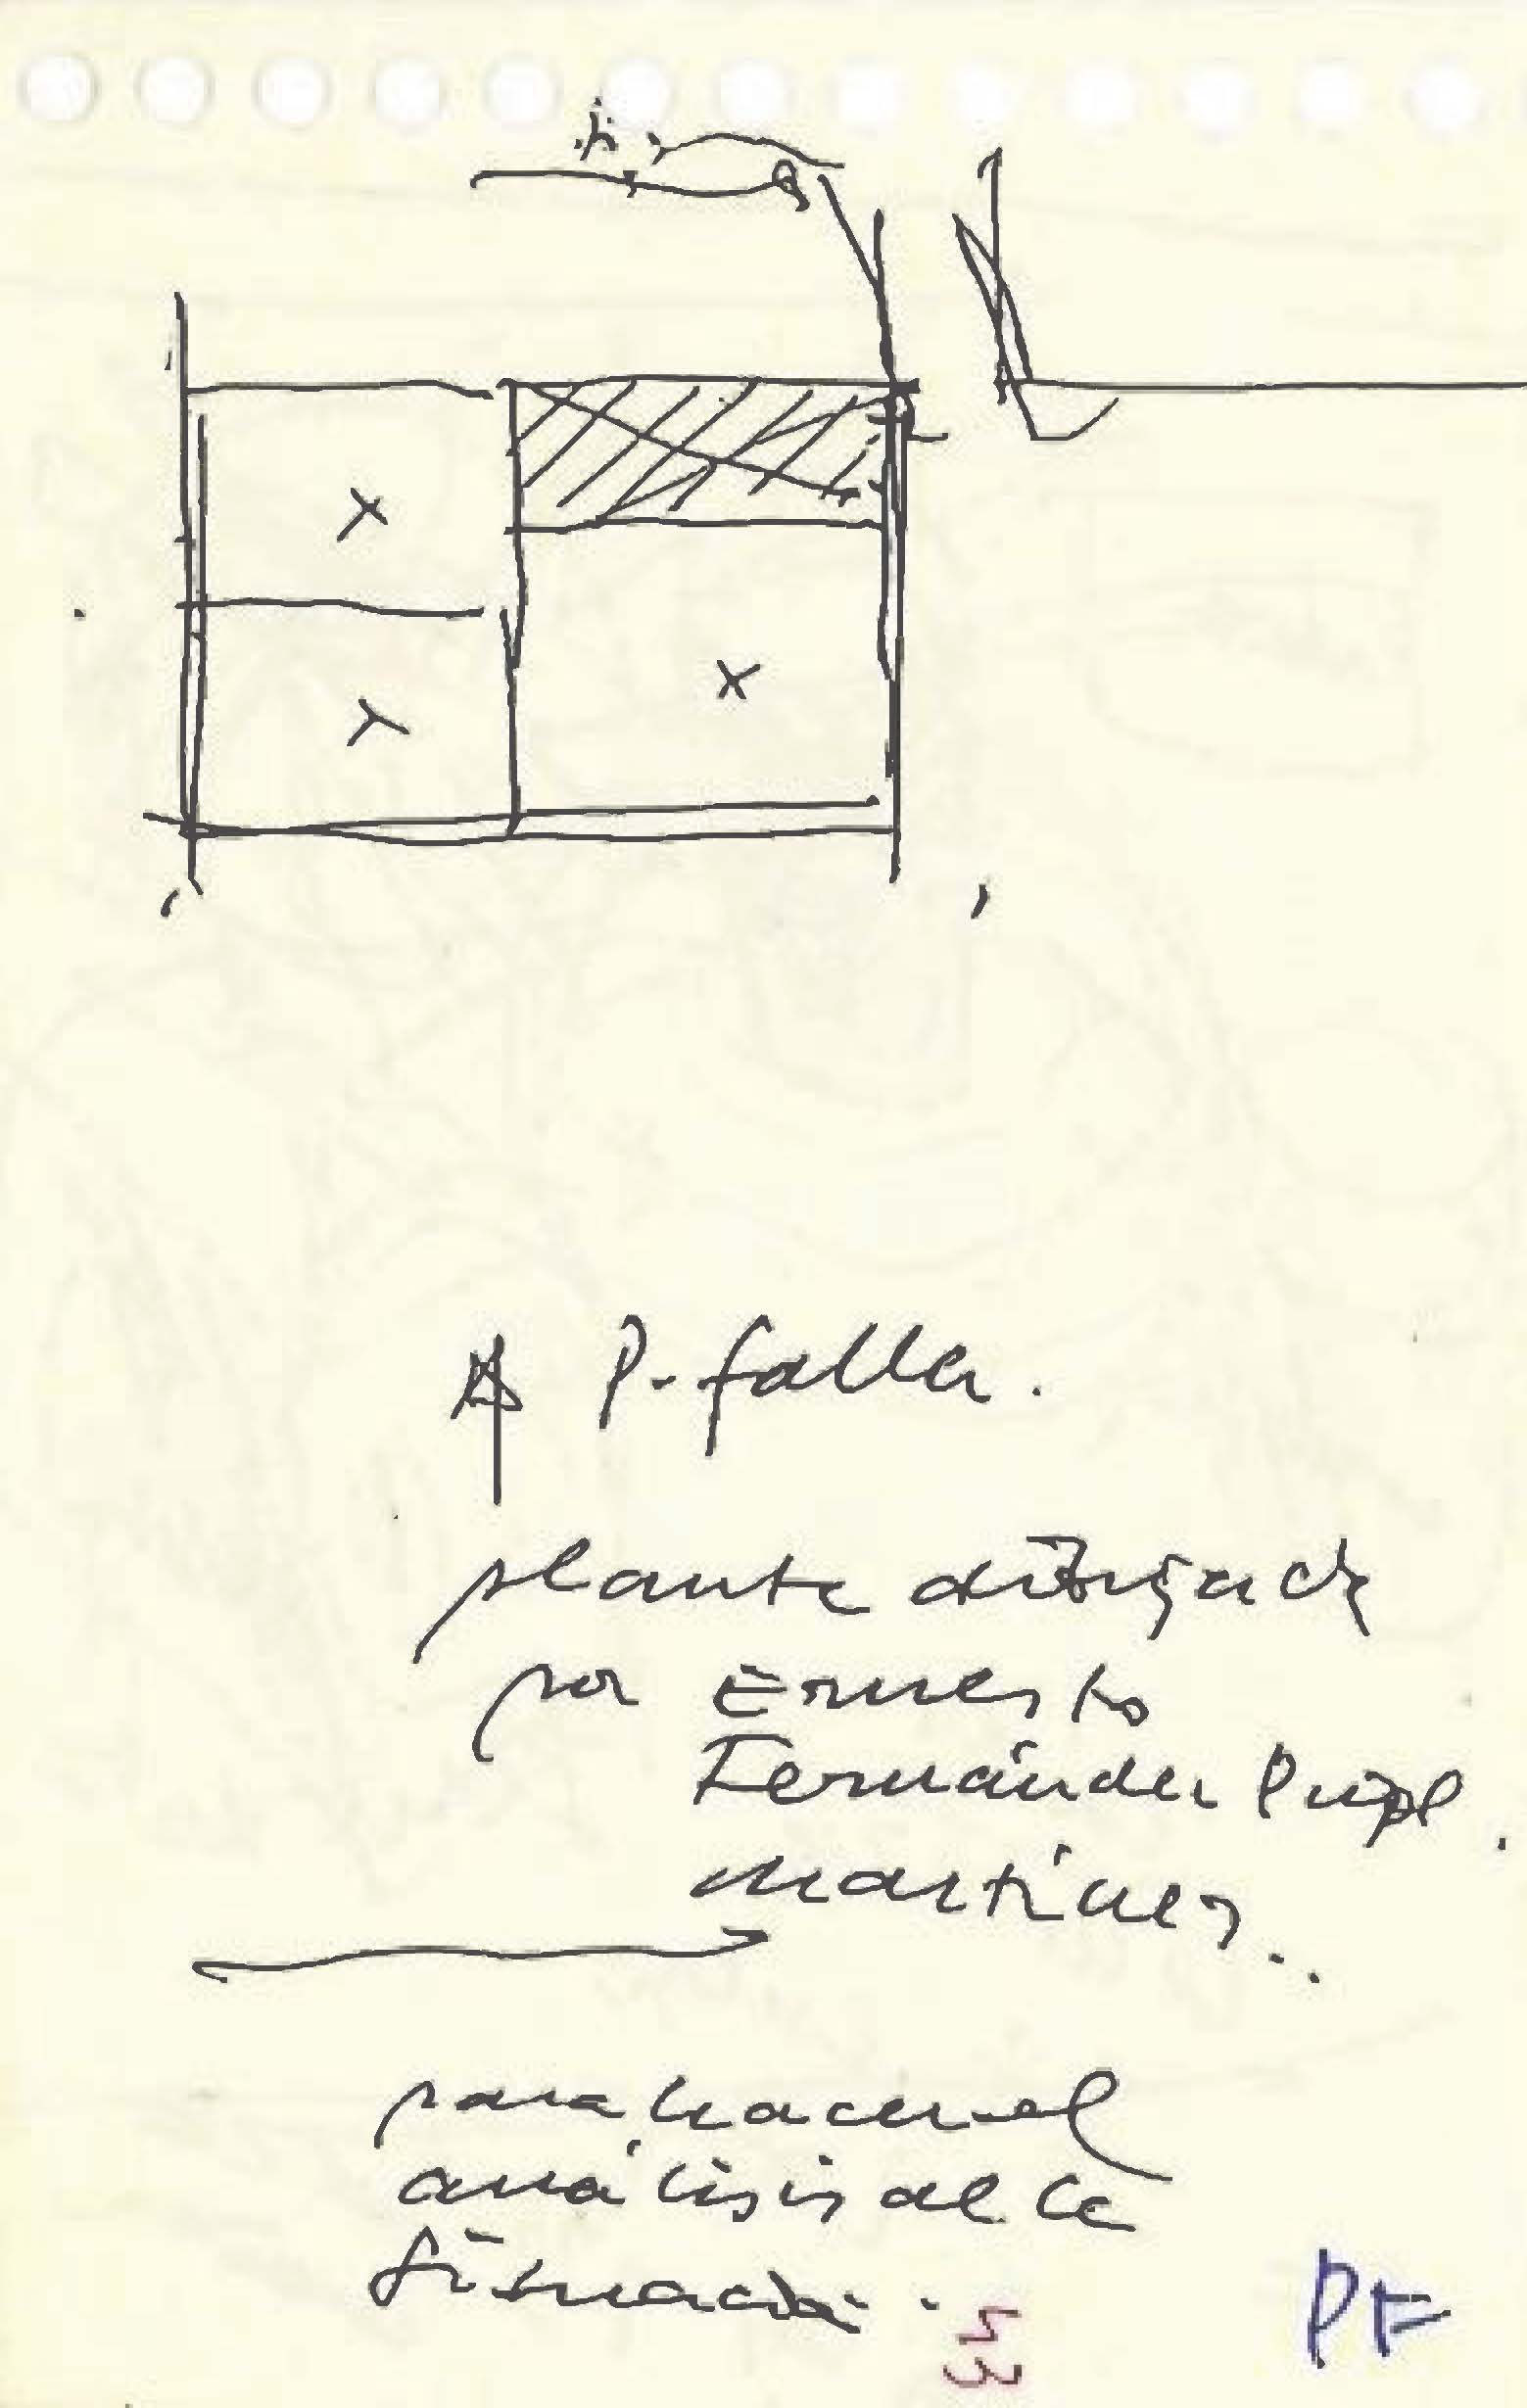 A P. Falla.
planta dibujada
por Ernesto
Fernández
Martínez..
para hacer el
análisis de la
situación.
53
PF